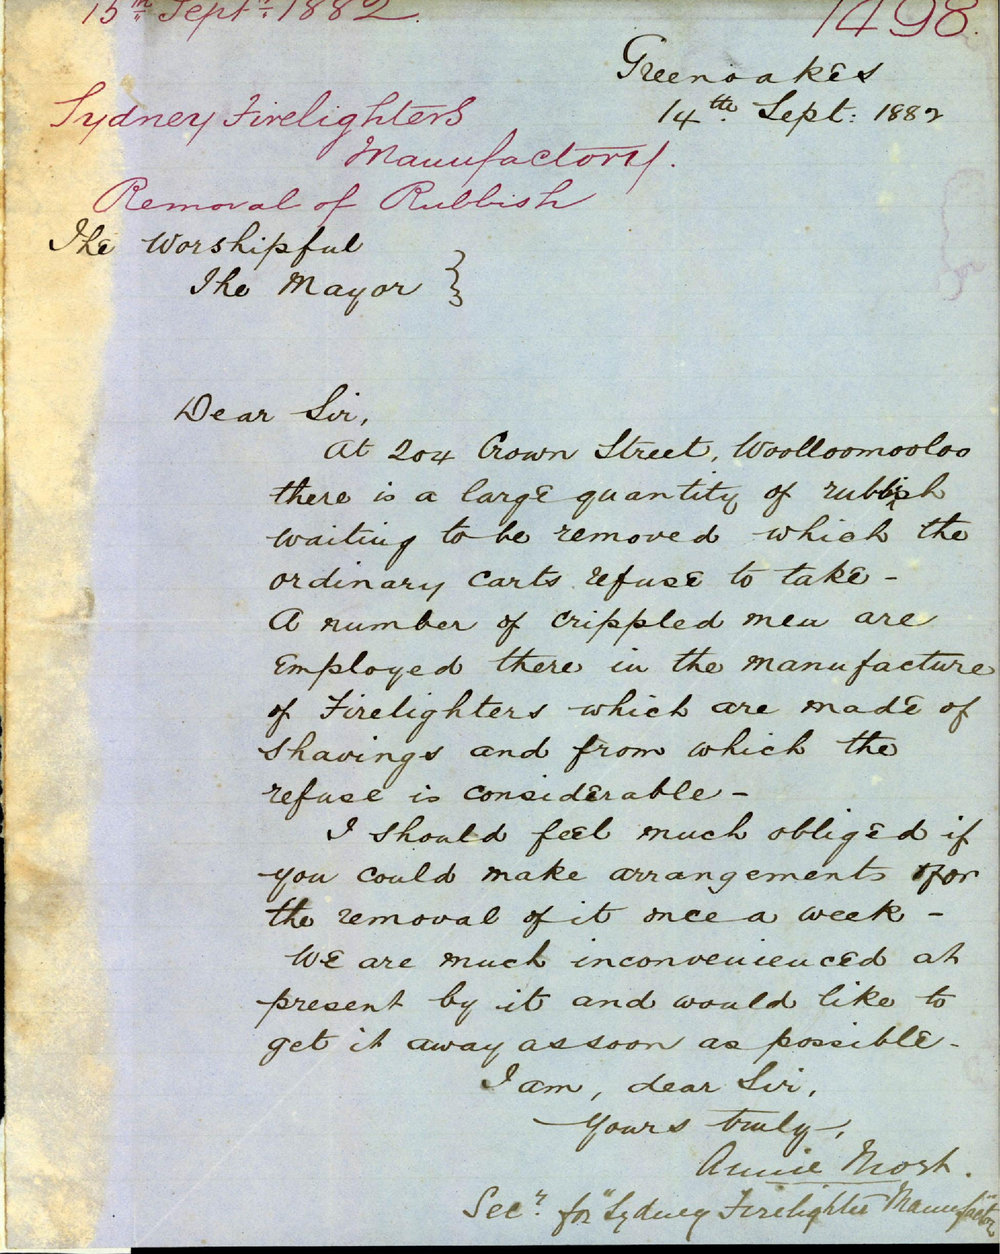 15th Sept: 1882.
1498.
Greenoakes
14th Sept: 1882
Sydney Firelighters
Manufactory.
Removal of Rubbish
The Worshipful
The Mayor }
Dear Sir,
At 204 Crown Street, Woolloomooloo
there is a large quantity of rubbish
waiting to be removed which the
ordinary carts refuse to take -
A number of crippled men are
employed there in the manufacture
of Firelighters which are made of
shavings and from which the
refuse is considerable -
I should feel much obliged if
you could make arrangements for
the removal of it once a week -
We are much inconvenienced at
present by it and would like to
get it away as soon as possible -
I am, dear Sir,
Yours truly,
Annie
Secr for "Sydney Firelighter Manufactory